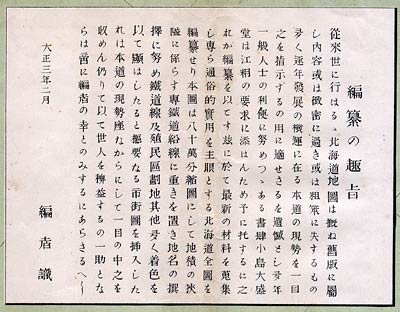 編纂の趣旨
從來世に行はるゝ北海道地圖は概ね舊版に屬
し内容或は微密に過き或は粗笨に失するもの
多く逐年發展の機運に在る本道の現勢を一目
之を指示するの用に適せさるを遺憾とし多年
一般人士の利便に努めつゝある書肆小島大盛
堂は江湖の要求に添はんため予に托するに之
れか編纂を以てす玆に於て最新の材料を蒐集
し専ら通俗的實用を主眼とする北海道全圖を
編纂せり本圖は八十萬分縮圖にして地積の狹
隘に係らす專鐵道沿線に重きを置き地名の撰
擇に努め鐵道線及殖民區劃地其他多く着色を
以て顯はしたると樞要なる市街圖を挿入した
れは本道の現勢座なからにして一目の中之を
收めん仍りて以て世人を裨益するの一助とな
らは啻に編者の幸とのみするにあらさるへし
大正三年二月
編者識